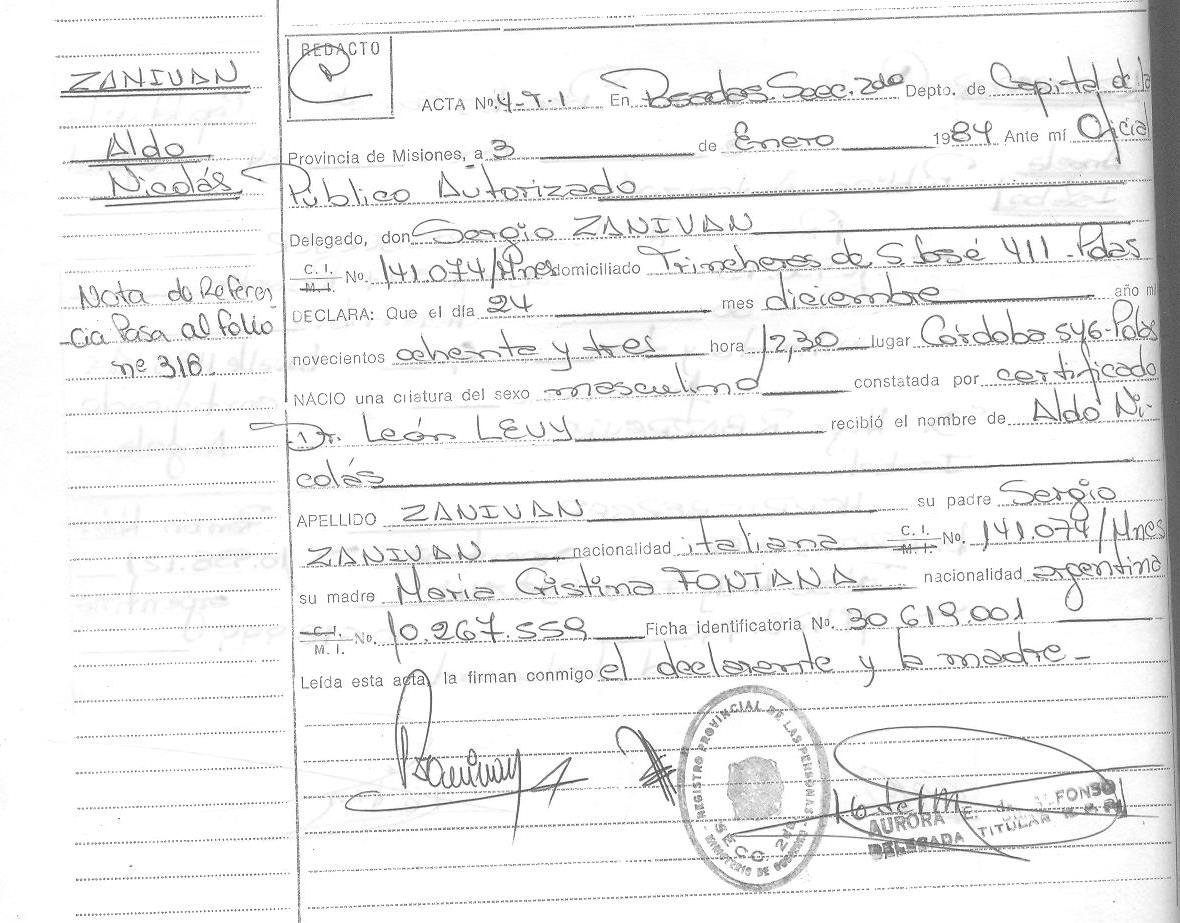 ZANIVAN
Aldo
Nicolás
Nota de Referen
cia Pasa al folio
nº 316.
REDACTO
ACTA No. 4-T-1 En Posadas Secc. 2da Depto. de Capital de la
Provincia de Misiones, a 3 de Enero 1984 Ante mí Oficial
Público Autorizado
Delegado, don Sergio ZANIVAN
C. I. M. I. No. 141.074/Mnes domiciliado Trincheras de S. José 411 - Pdas
DECLARA: Que el día 24 mes diciembre año mi
novecientos ochenta y tres hora 12,30 lugar Córdoba 546-Pdas
NACIO una criatura del sexo masculino constatada por certificado
Dr. León LEVY recibió el nombre de Aldo Ni-
colás
APELLIDO ZANIVAN su padre Sergio
ZANIVAN nacionalidad italiana C. I. M. I. No. 141.074/Mnes
su madre María Cristina FONTANA nacionalidad argentina
C. I. M. I. No. 10.267.559 Ficha identificatoria No. 30.619.001
Leída esta acta, la firman conmigo el declarante y la madre-
REGISTRO PROVINCIAL DE LAS PERSONAS
SECC. 2da
MINISTERIO DE GOBIERNO
AURORA E. de ALFONSO
DELEGADA TITULAR